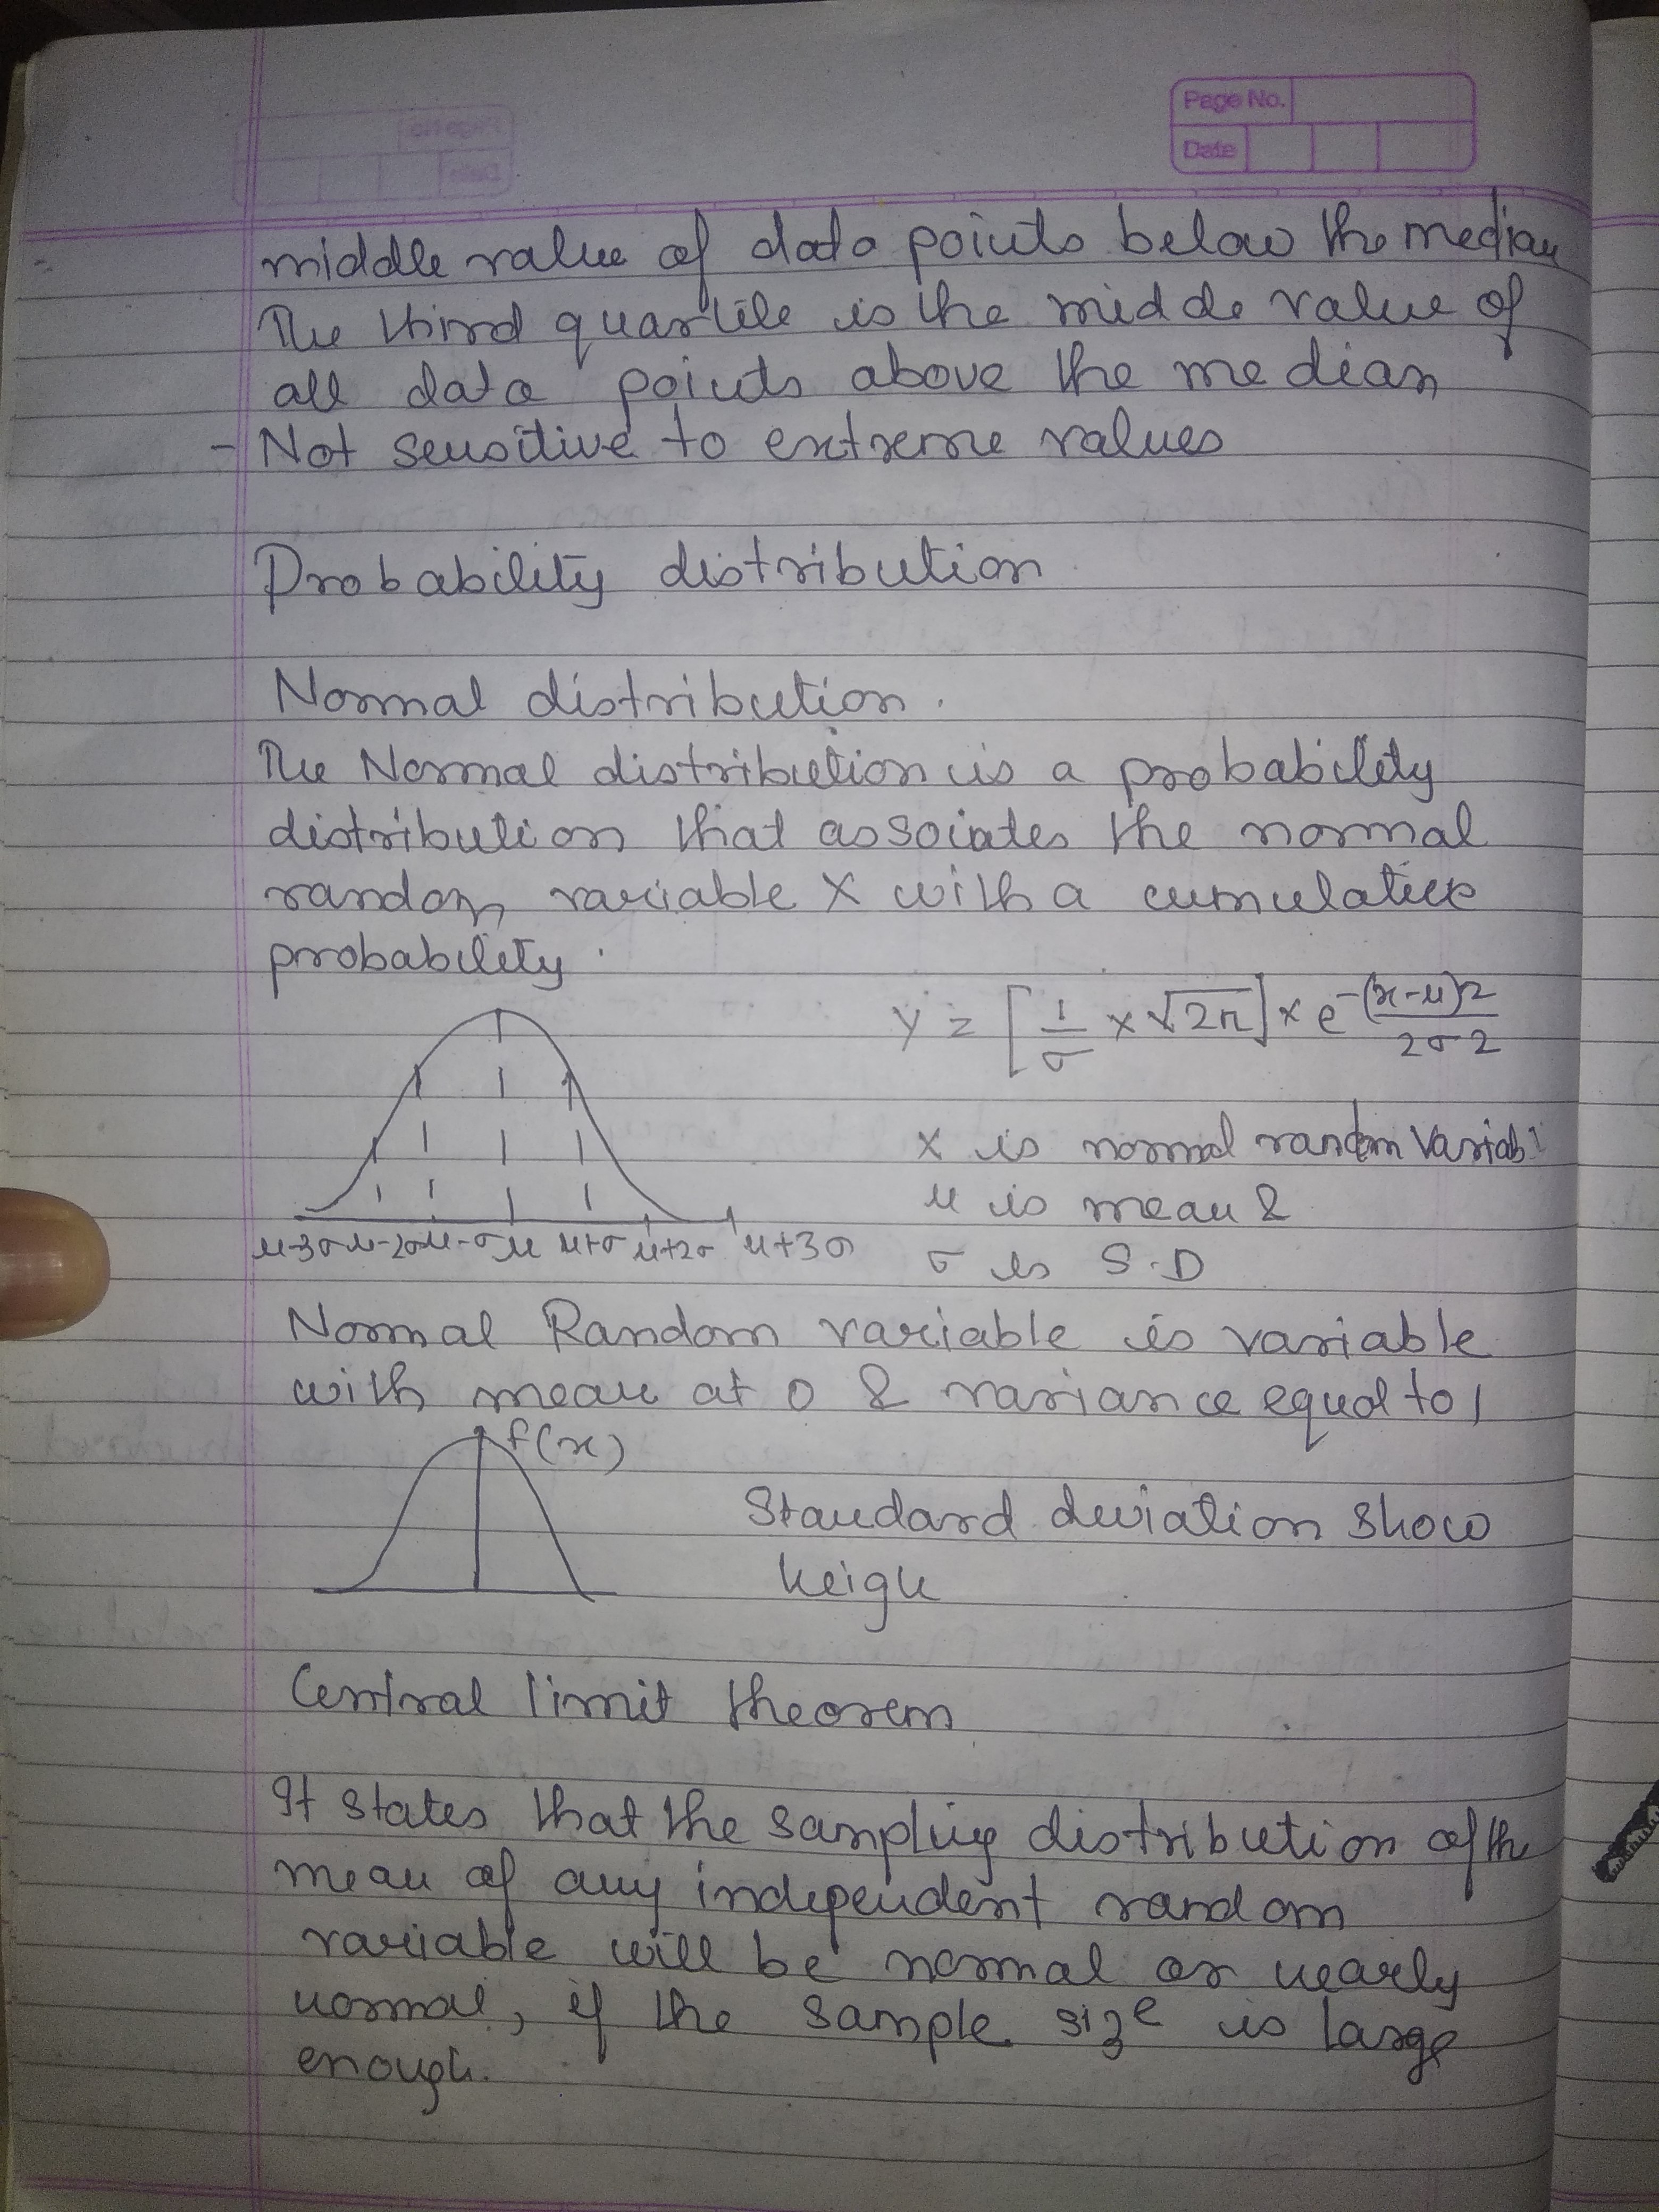 Page No.
Date
middle value of data points below the median
The third quartile is the midde value of
all data points above the median
- Not sensitive to extreme values
Probability distribution
Normal distribution.
The Normal distribution is a probability
distribution that assoiates the normal
random variable X with a cumulative
probability.
Y = [1/σ × √2π] × e^-(x-μ)2/2σ2
X is normal random Variabl
μ is mean &
σ is S.D
μ-3σ μ-2σ μ-σ μ μ+σ μ+2σ μ+3σ
Normal Random variable is variable
with mean at 0 & variance equal to 1
f(x)
Standard deviation show
heigh
Central limit theorem
It states that the sampling distribution of the
mean of any independent random
variable will be normal or nearly
normal, if the sample size is large
enough.